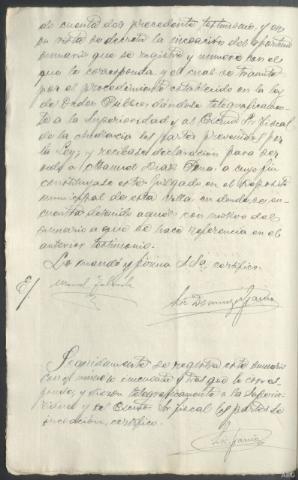 de cuenta del precedente testimonio, y en
su vista se decreta la incoación del oportuno
sumario que se registre y numere con el
que le corresponda, y el cual se tramite
por el procedimiento establecido en la ley
de Orden Público, dándose telegráficamen-
te a la Superioridad y al Excmo Sr. Fiscal
de la Audiencia los partes prevenidos por
la Ley, y recíbase declaración para
a Manuel Díaz a cuyo fin
constitúyase este Juzgado en el Depósito
municipal de esta villa, en donde se en-
cuentra detenido aquel con motivo del
sumario a que se hace referencia en el
anterior testimonio.
Lo mandó y firma S.Sª, certifico.
E/
Seguidamente se registra este sumario
con el número cincuenta y tres que le corres-
ponde, y dieron telegráficamente a la Superio-
ridad y al Excmo Sr. Fiscal los partes de
incoación, certifico.